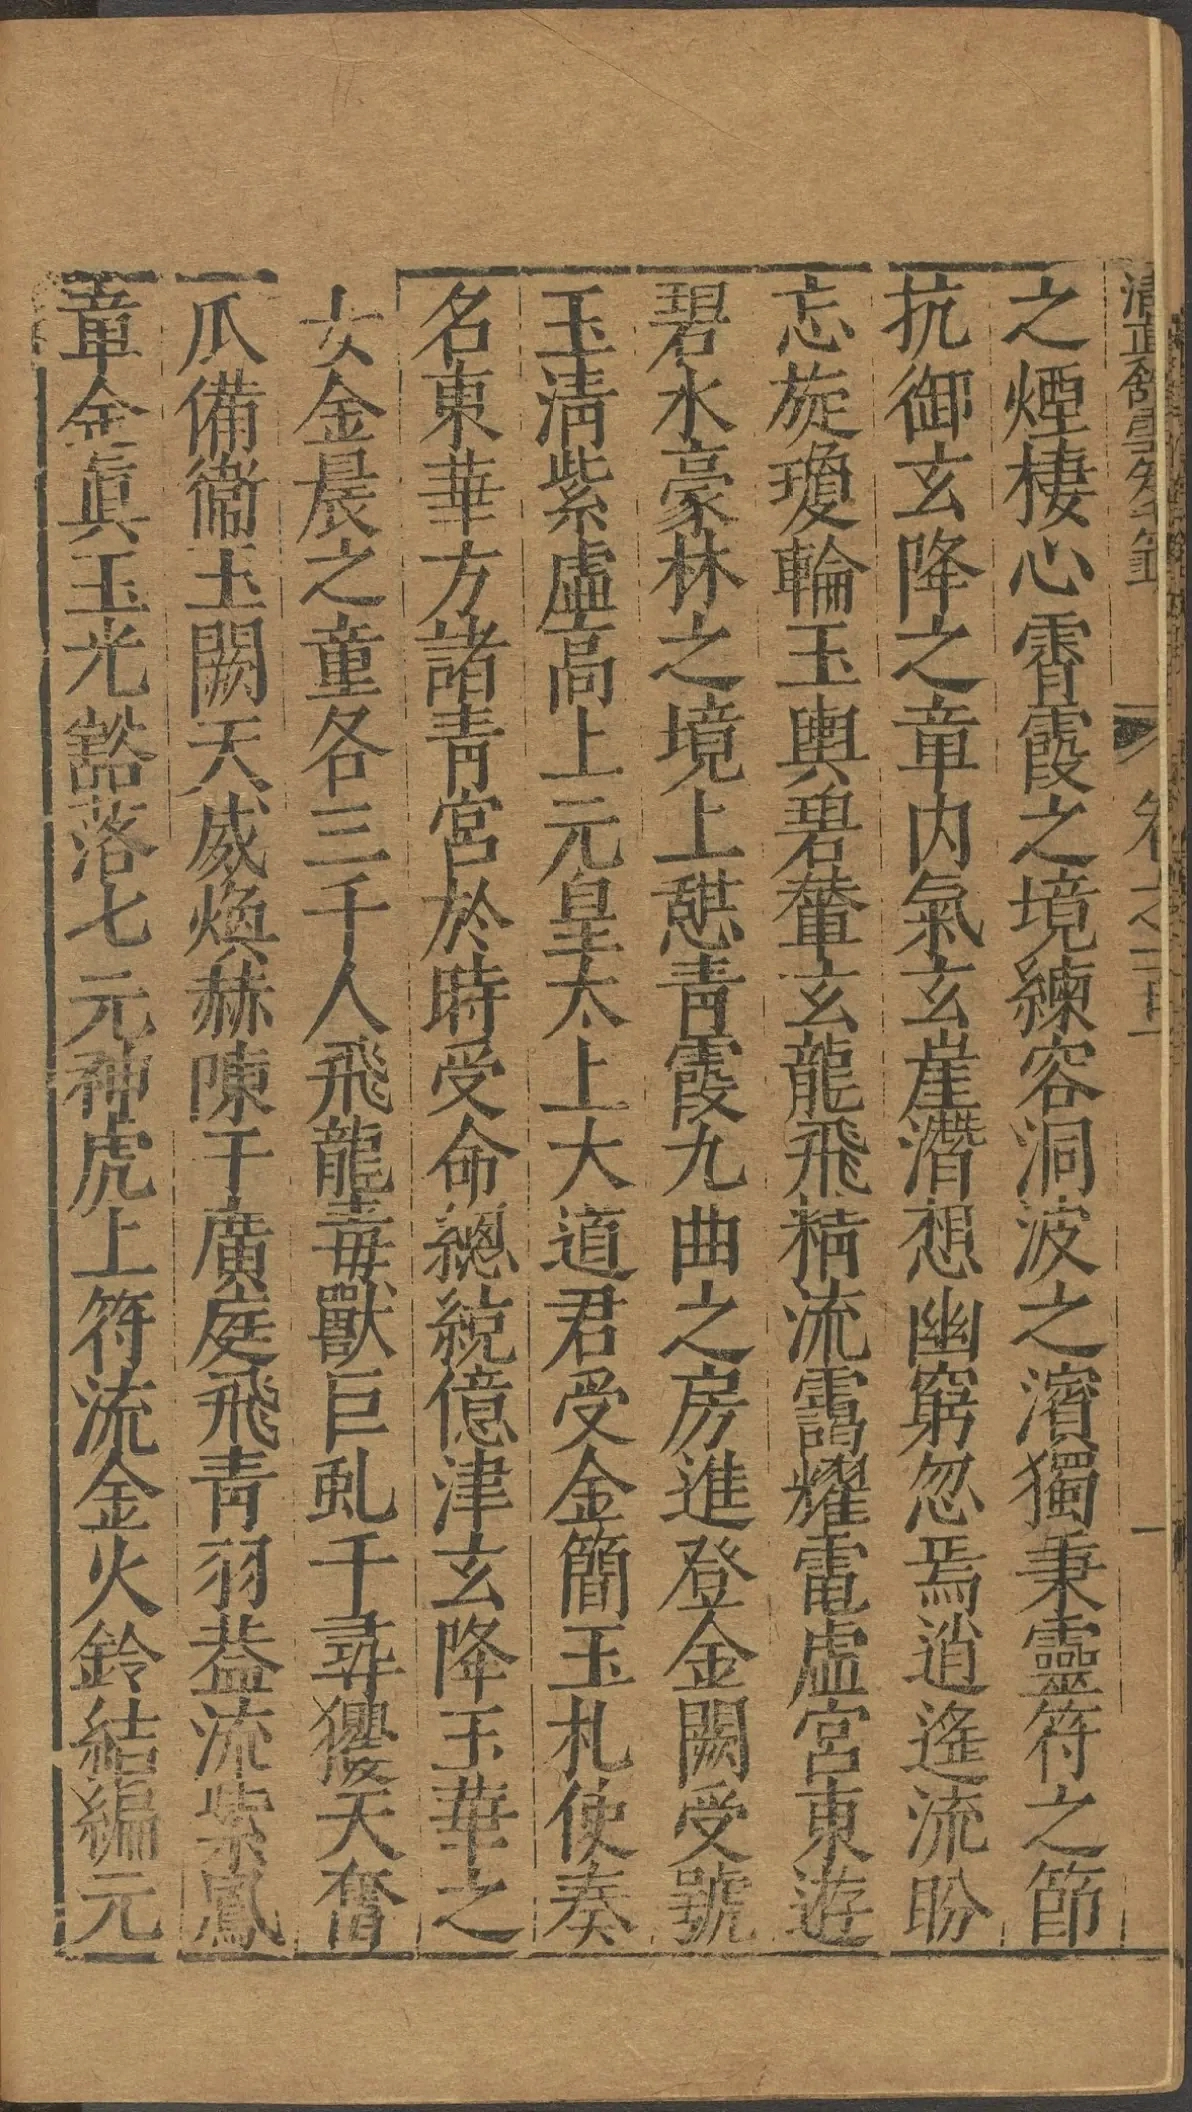 之煙棲心霄霞之境練容洞波之濱獨秉靈符之節
抗御玄降之章内氣玄崖潛想幽窮忽焉逍遙流盼
忘旋瓊輪玉輿碧輦玄龍飛精流靄耀電虛宮東遊
碧水豪林之境上憩青霞九曲之房進登金闕受號
玉清紫虛高上元皇太上大道君受金簡玉札使奏
名東華方諸青宮於時受命總統億津玄降玉華之
女金晨之童各三千人飛龍毒獸巨虬千尋玃天奮
爪備衞玉闕天威煥赫陳于廣庭飛青羽蓋流紫鳳
章金眞玉光豁落七元神虎上符流金火鈴結編元